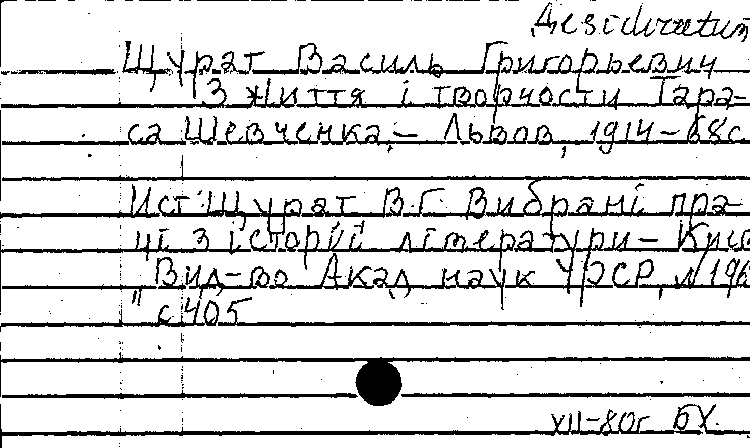 Desideratum
Щурат Василь Григорьевич
З життя і творчости Тара-
са Шевченка.– Львов, 1914–68с
Ист: Щурат В.Г. Вибрані пра-
ці з історії літератури– Киев
"Вид-во Акад наук УРСР,
с 405
XII–80г БХ.